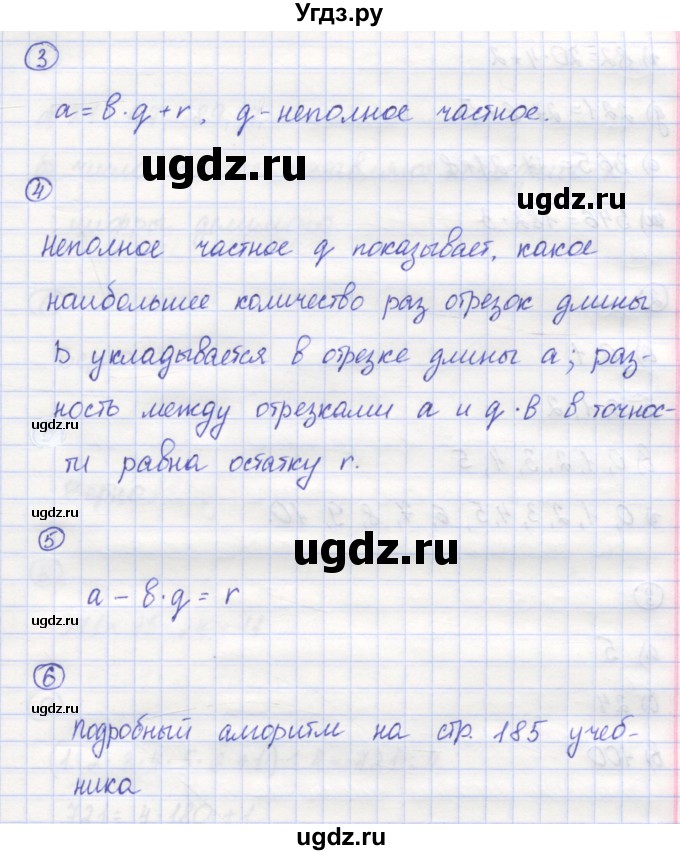 Угдз.ру
3
a = b · q + r, q - неполное частное.
ugdz.ru
ugdz.ru
4
Неполное частное q показывает, какое
наибольшее количество раз отрезок длины
b укладывается в отрезке длины a; раз-
ugdz.ru
ность между отрезками a и q · b в точнос-
ти равна остатку r.
ugdz.ru
5
ugdz.ru
a - b · q = r
ugdz.ru
6
ugdz.ru
Подробный алгоритм на стр. 185 учеб-
ника
ugdz.ru
ugdz.ru